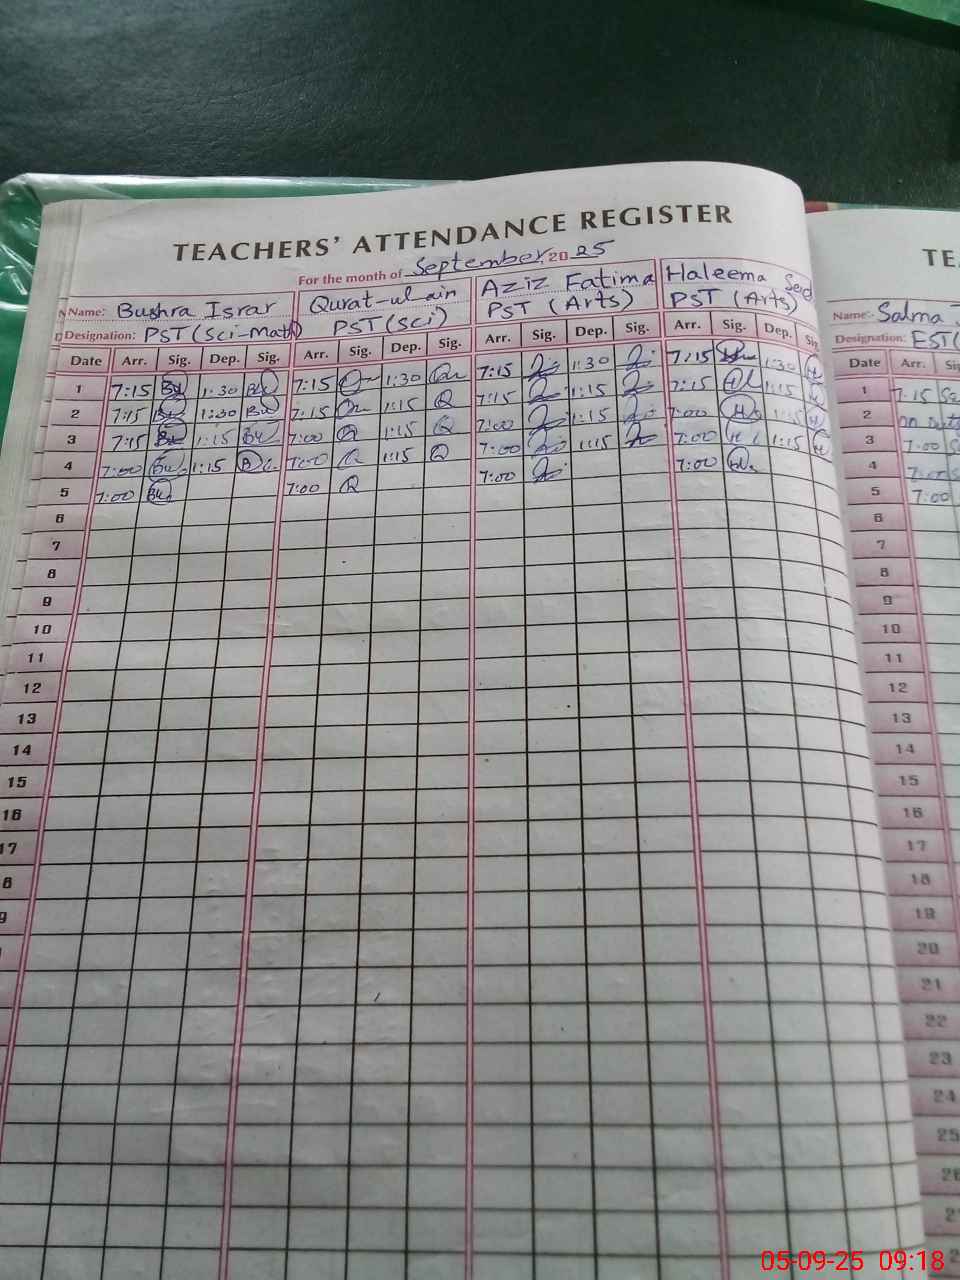 TEACHERS' ATTENDANCE REGISTER
For the month of September 2025
Name: Bushra Israr Qurat-ul-ain Aziz Fatima Haleema
Designation: PST (Sci-Math) PST (Sci) PST (Arts) PST (Arts)
Date Arr. Sig. Dep. Sig. Arr. Sig. Dep. Sig. Arr. Sig. Dep. Sig. Arr. Sig. Dep. Sig.
1 7:15 Bu 1:30 Bu 7:15 1:30 Qu 7:15 1:30 7:15 1:30
2 7:15 Bu 1:30 Bu 7:15 Qu 1:15 Q 7:15 1:15 7:15 1:15
3 7:15 Bu 1:15 Bu 7:00 Q 1:15 Q 7:00 1:15 7:00 1:15
4 7:00 Bu 1:15 7:00 Q 1:15 Q 7:00 1:15 7:00 1:15
5 7:00 Bu 7:00 Q 7:00 7:00
6
7
8
9
10
11
12
13
14
15
16
17
8
9
TE
Name: Salma
Designation: EST (
Date Arr. Si
1 7:15 Sa
2 on
3 7:00
4 7:00
5 7:00
6
7
8
9
10
11
12
13
14
15
16
17
18
19
20
21
22
23
24
25
26
2
05-09-25 09:18